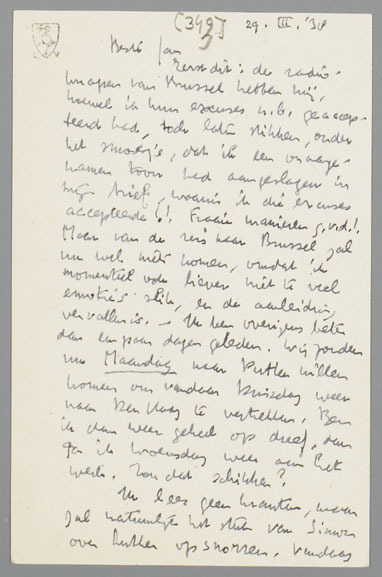 [349]
3
29. III. '38
Beste Jan
Eerst dit: de radio-
knapen van Brussel hebben mij,
hoewel ik hun excuses n.b. geaccep-
teerd had, toch laten stikken, onder
het smoesje, dat ik een
toon had aangeslagen in
mijn brief, waarin ik die excuses
accepteerde!! Fraaie manieren, g.v.d.!
Maar van de reis naar Brussel zal
nu wel niets komen, omdat ik
momenteel ook liever niet te veel
emotie's slik, en de aanleiding
vervallen is. – Ik ben overigens beter
dan een paar dagen geleden. Wij zouden
nu Maandag naar Putten willen
komen om vandaar Dinsdag weer
naar Den Haag te vertrekken. Ben
ik dan weer geheel op dreef, dan
ga ik Woensdag weer aan het
werk. Zou dat schikken?
Ik lees geen kranten, maar
zal natuurlijk het stuk van Simon
over Luther opsnorren. Vandaag